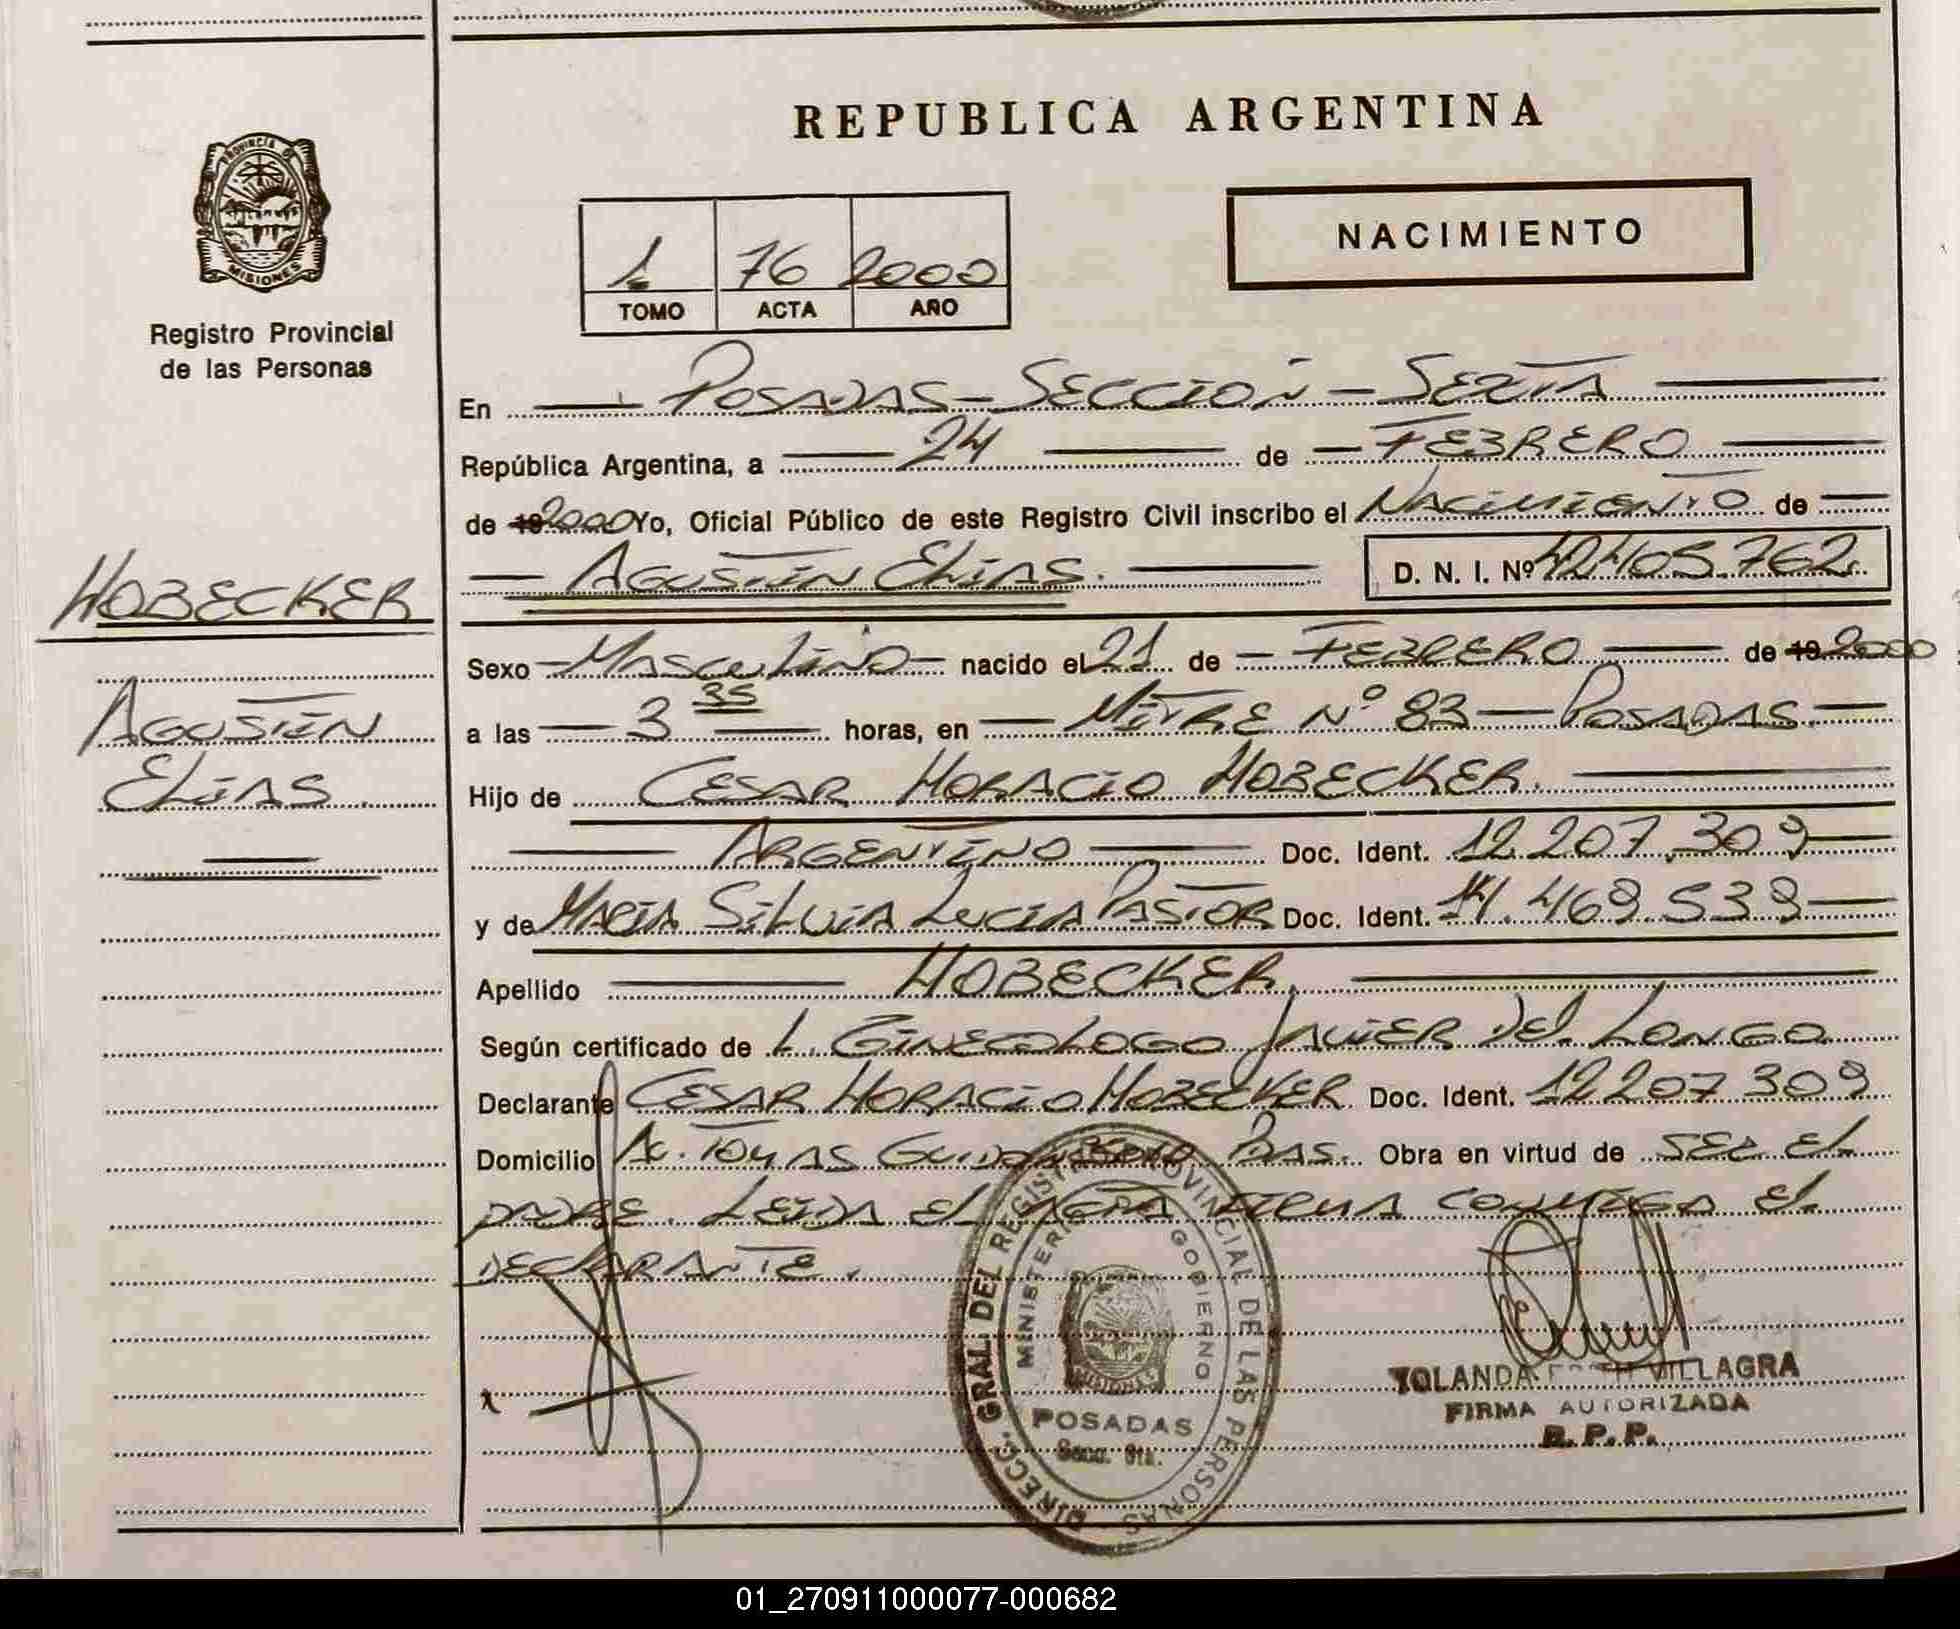 REPUBLICA ARGENTINA
PROVINCIA DE
MISIONES
Registro Provincial
de las Personas
NACIMIENTO
1 76 2000
TOMO ACTA AÑO
En POSADAS - SECCION - SEXTA
República Argentina, a 24 de FEBRERO
de 19 2000 Yo, Oficial Público de este Registro Civil inscribo el NACIMIENTO de
AGUSTIN ELIAS. D. N. I. Nº 42.405.762
HOBECKER
AGUSTIN
ELIAS.
Sexo MASCULINO nacido el 21 de FEBRERO de 19 2000
a las 3 35 horas, en MITRE Nº 83 - POSADAS.
Hijo de CESAR HORACIO HOBECKER.
ARGENTINO Doc. Ident. 12.207.309
y de MARIA SILVIA LUCIA PASTOR Doc. Ident. 14.469.539
Apellido HOBECKER.
Según certificado de L. GINECOLOGO JAVIER DEL LONGO
Declarante CESAR HORACIO HOBECKER Doc. Ident. 12207309
Domicilio AV. TOMAS GUIDO PDAS. Obra en virtud de SER EL
PADRE. LEIDA EL ACTA FIRMA CONMIGO EL
DECLARANTE.
DIRECC. GRAL. DEL REGISTRO PROVINCIAL DE LAS PERSONAS
MINISTERIO GOBIERNO
MISIONES
POSADAS
Secc. 6ta.
x
YOLANDA VILLAGRA
FIRMA AUTORIZADA
R. P. P.
01_270911000077-000682